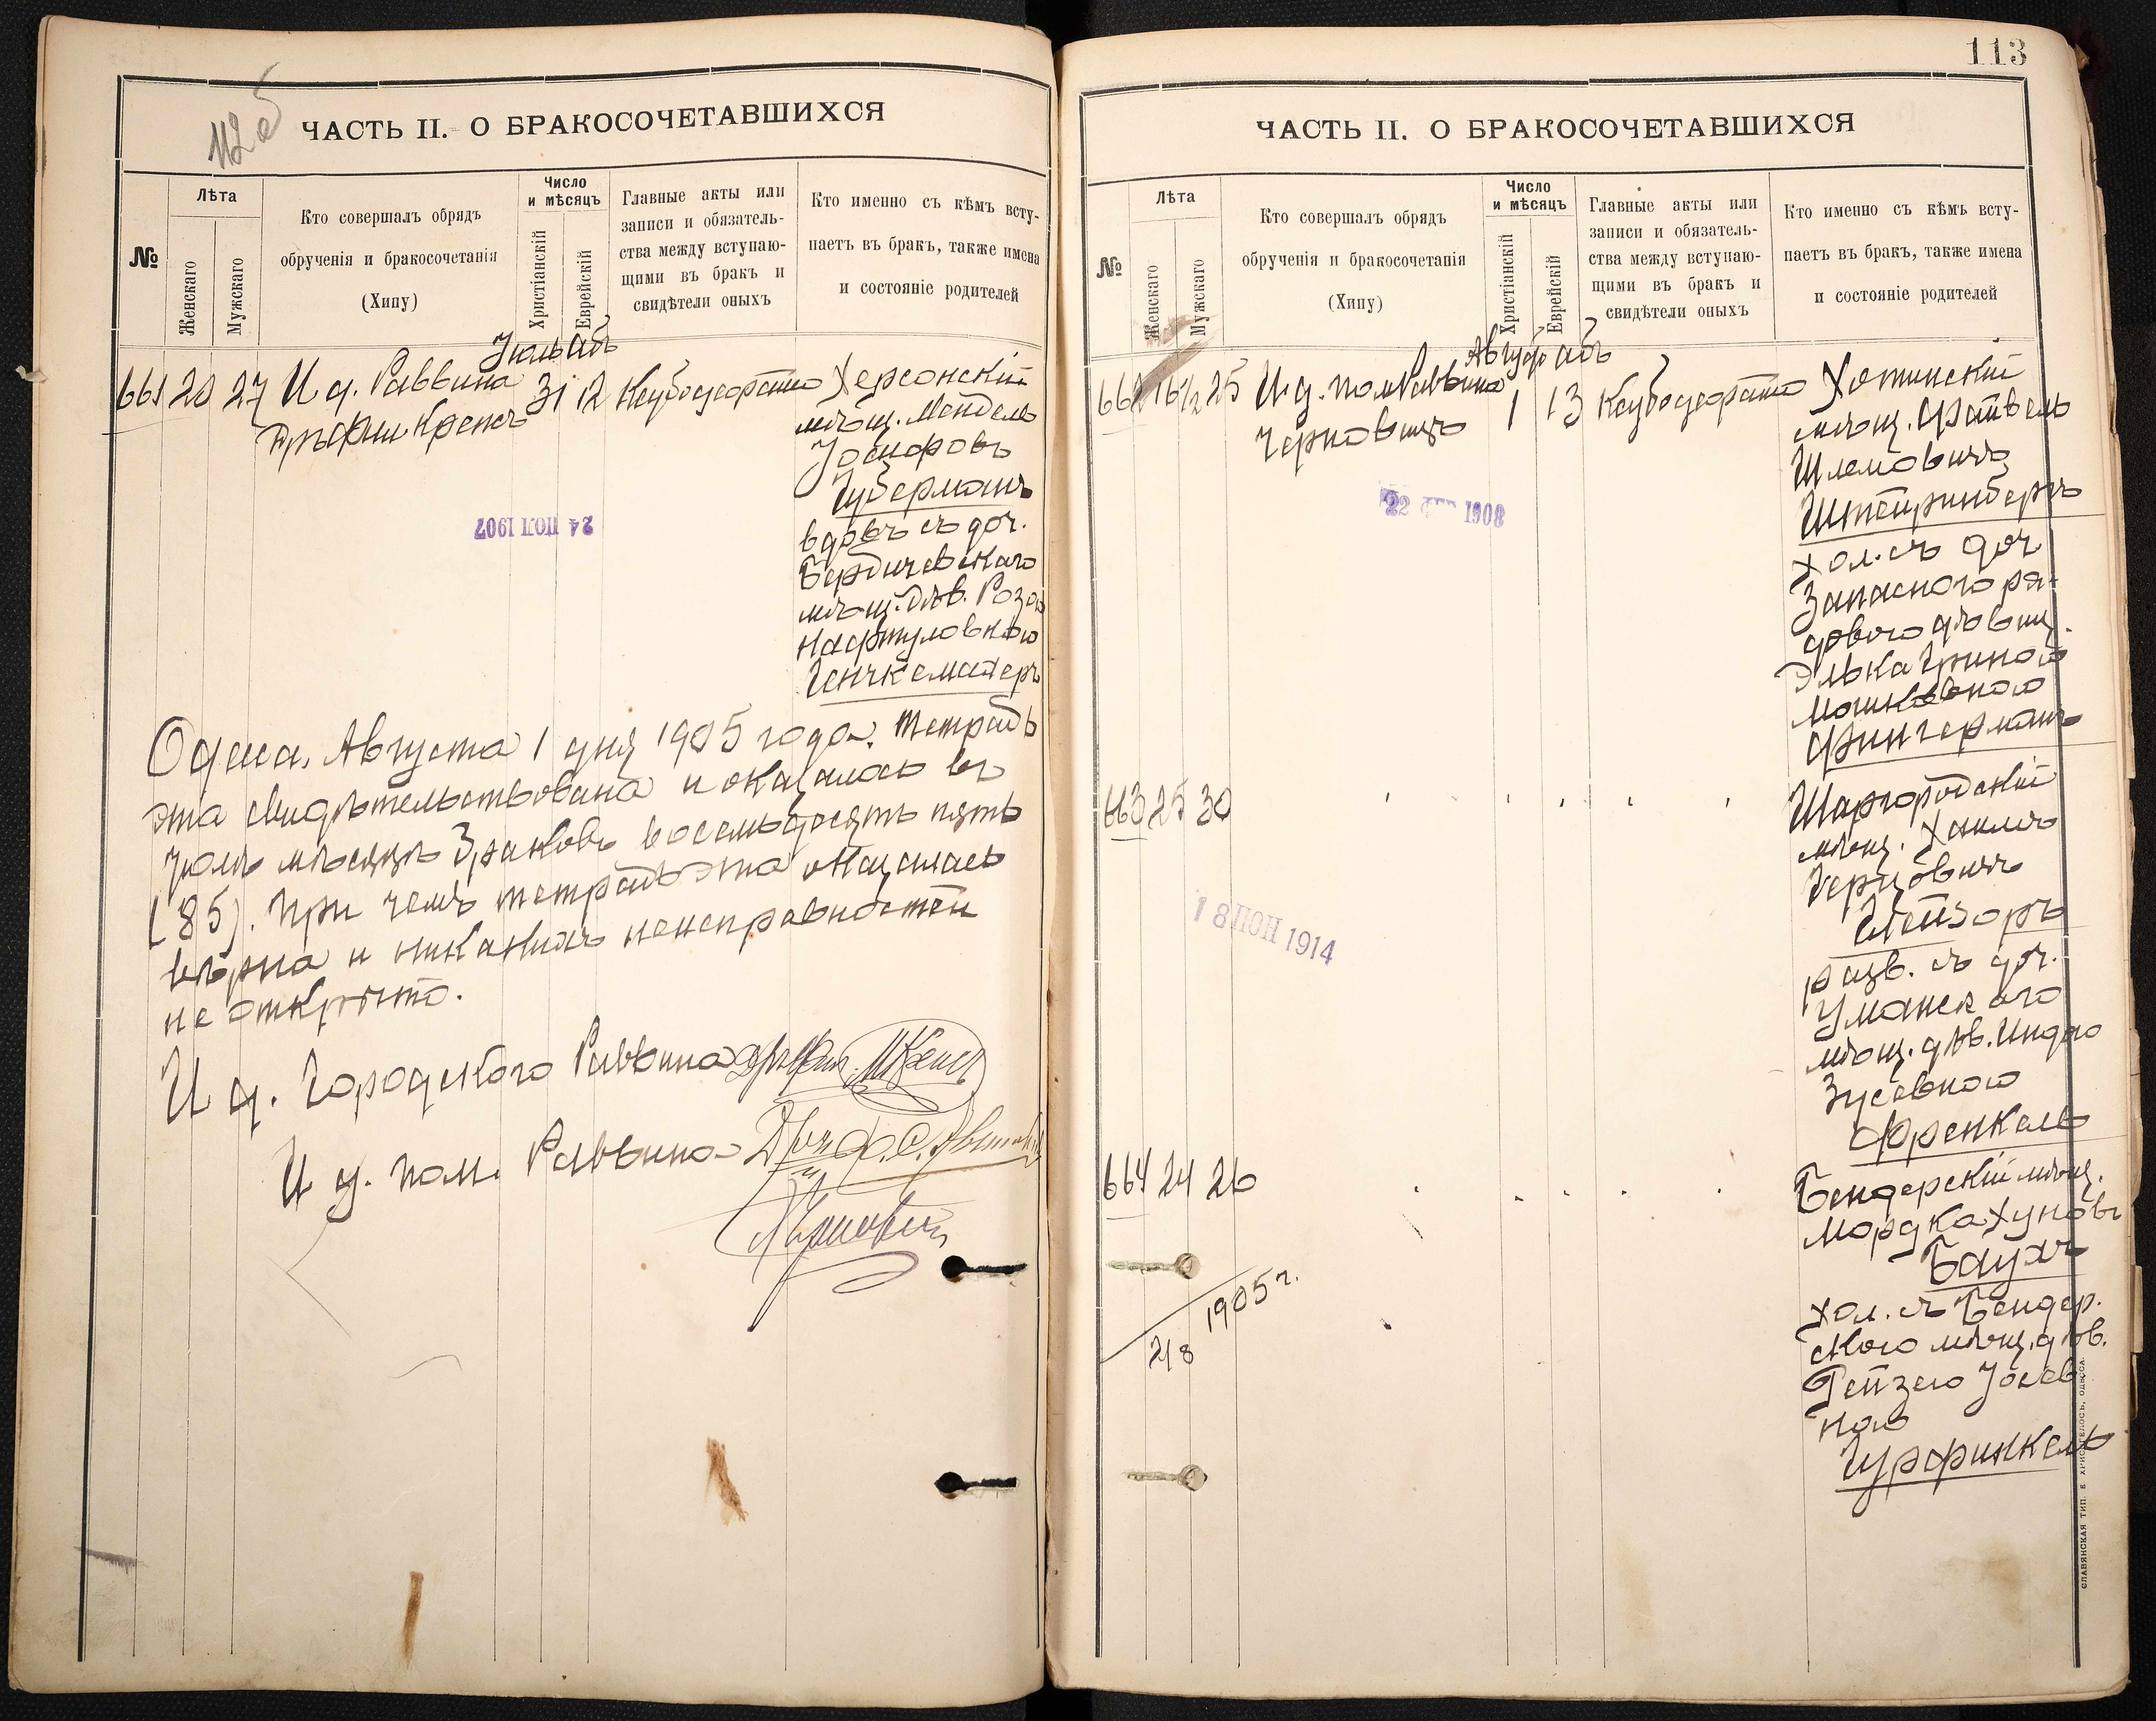 112 об
ЧАСТЬ II. О БРАКОСОЧЕТАВШИХСЯ
№
Лѣта
Женскаго
Мужскаго
Кто совершалъ обрядъ
обрученія и бракосочетанія
(Хипу)
Число
и мѣсяцъ
Христіанскій
Еврейскій
Главные акты или
записи и обязатель-
ства между вступаю-
щими въ бракъ и
свидѣтели оныхъ
Кто именно съ кѣмъ всту-
паетъ въ бракъ, также имена
и состояніе родителей
Іюль Абъ
661 20 27 И д. Раввина 31 12 Херсонскій
Крепсъ мѣщ. Мендель
Іосифовъ
Губерманъ
вдовъ съ доч.
Бердичевскаго
мѣщ. дѣв. Розою
Нафтуловною
Генчкемахеръ
24 ІЮЛ 1907
Одесса, Августа 1 дня 1905 года. Тетрадь
эта свидѣтельствована и оказалось въ
Іюлѣ мѣсяцѣ браковъ восемьдесятъ пять
(85). При чемъ тетрадь эта оказалась
вѣрна и никакихъ неисправностей
не открыто.
И д. Городского Раввина
И д. пом. Раввина
113
ЧАСТЬ II. О БРАКОСОЧЕТАВШИХСЯ
№
Лѣта
Женскаго
Мужскаго
Кто совершалъ обрядъ
обрученія и бракосочетанія
(Хипу)
Число
и мѣсяцъ
Христіанскій
Еврейскій
Главные акты или
записи и обязатель-
ства между вступаю-
щими въ бракъ и
свидѣтели оныхъ
Кто именно съ кѣмъ всту-
паетъ въ бракъ, также имена
и состояніе родителей
Август Абъ
662 16½ 25 И д. пом Раввина 1 13 Хотинскій
Черновицъ мѣщ. Фатвель
Шлемовичъ
Штейринбергъ
хол. съ доч
Запасного ря-
дового дѣвиц.
Элька Гриною
Мошковною
Фингерманъ
22 1908
663 25 30 Шаргородскій
мѣщ. Хаимъ
Герцовичъ
Глейзоръ
разв. съ доч.
Уманскаго
мѣщ. дѣв. Индою
Зусевною
Френкель
18 ІЮН 1914
664 24 26 Бендерскій мѣщ.
Мордка Хуновъ
Баухъ
хол. съ Бендер.
скою мѣщ. дѣв.
Рейзею Іосев
ною
Гурфинкель
1905 г.
2/8
СЛАВЯНСКАЯ ТИП. Е ХРИСОГЕЛОСЪ, ОДЕССА.